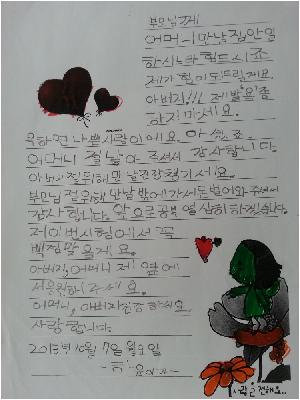 부모님께
어머니 만날 집안일
하시느라 힘드시죠
제가 힘이 되드릴게요.
아버지!!! 제발 욕 좀
하지 마세요.
욕하면 나쁜사람이에요. 아셨죠
어머니 절 낳아 주셔서 감사합니다.
아버지 절 위해 만날 건강 챙기세요.
부모님 절 위해 만날 밖에 가서 돈 벌어와 주셔서
감사합니다. 앞으로 공부 열심히 하겠습니다.
저 이번 시험에서 꼭
백점 맞을게요.
아버지, 어머니 제 옆에
서 응원해 주세요.
어머니, 아버지 건강하세요
사랑합니다.
2013년 10월 7일 월요일
사랑을 전해요..